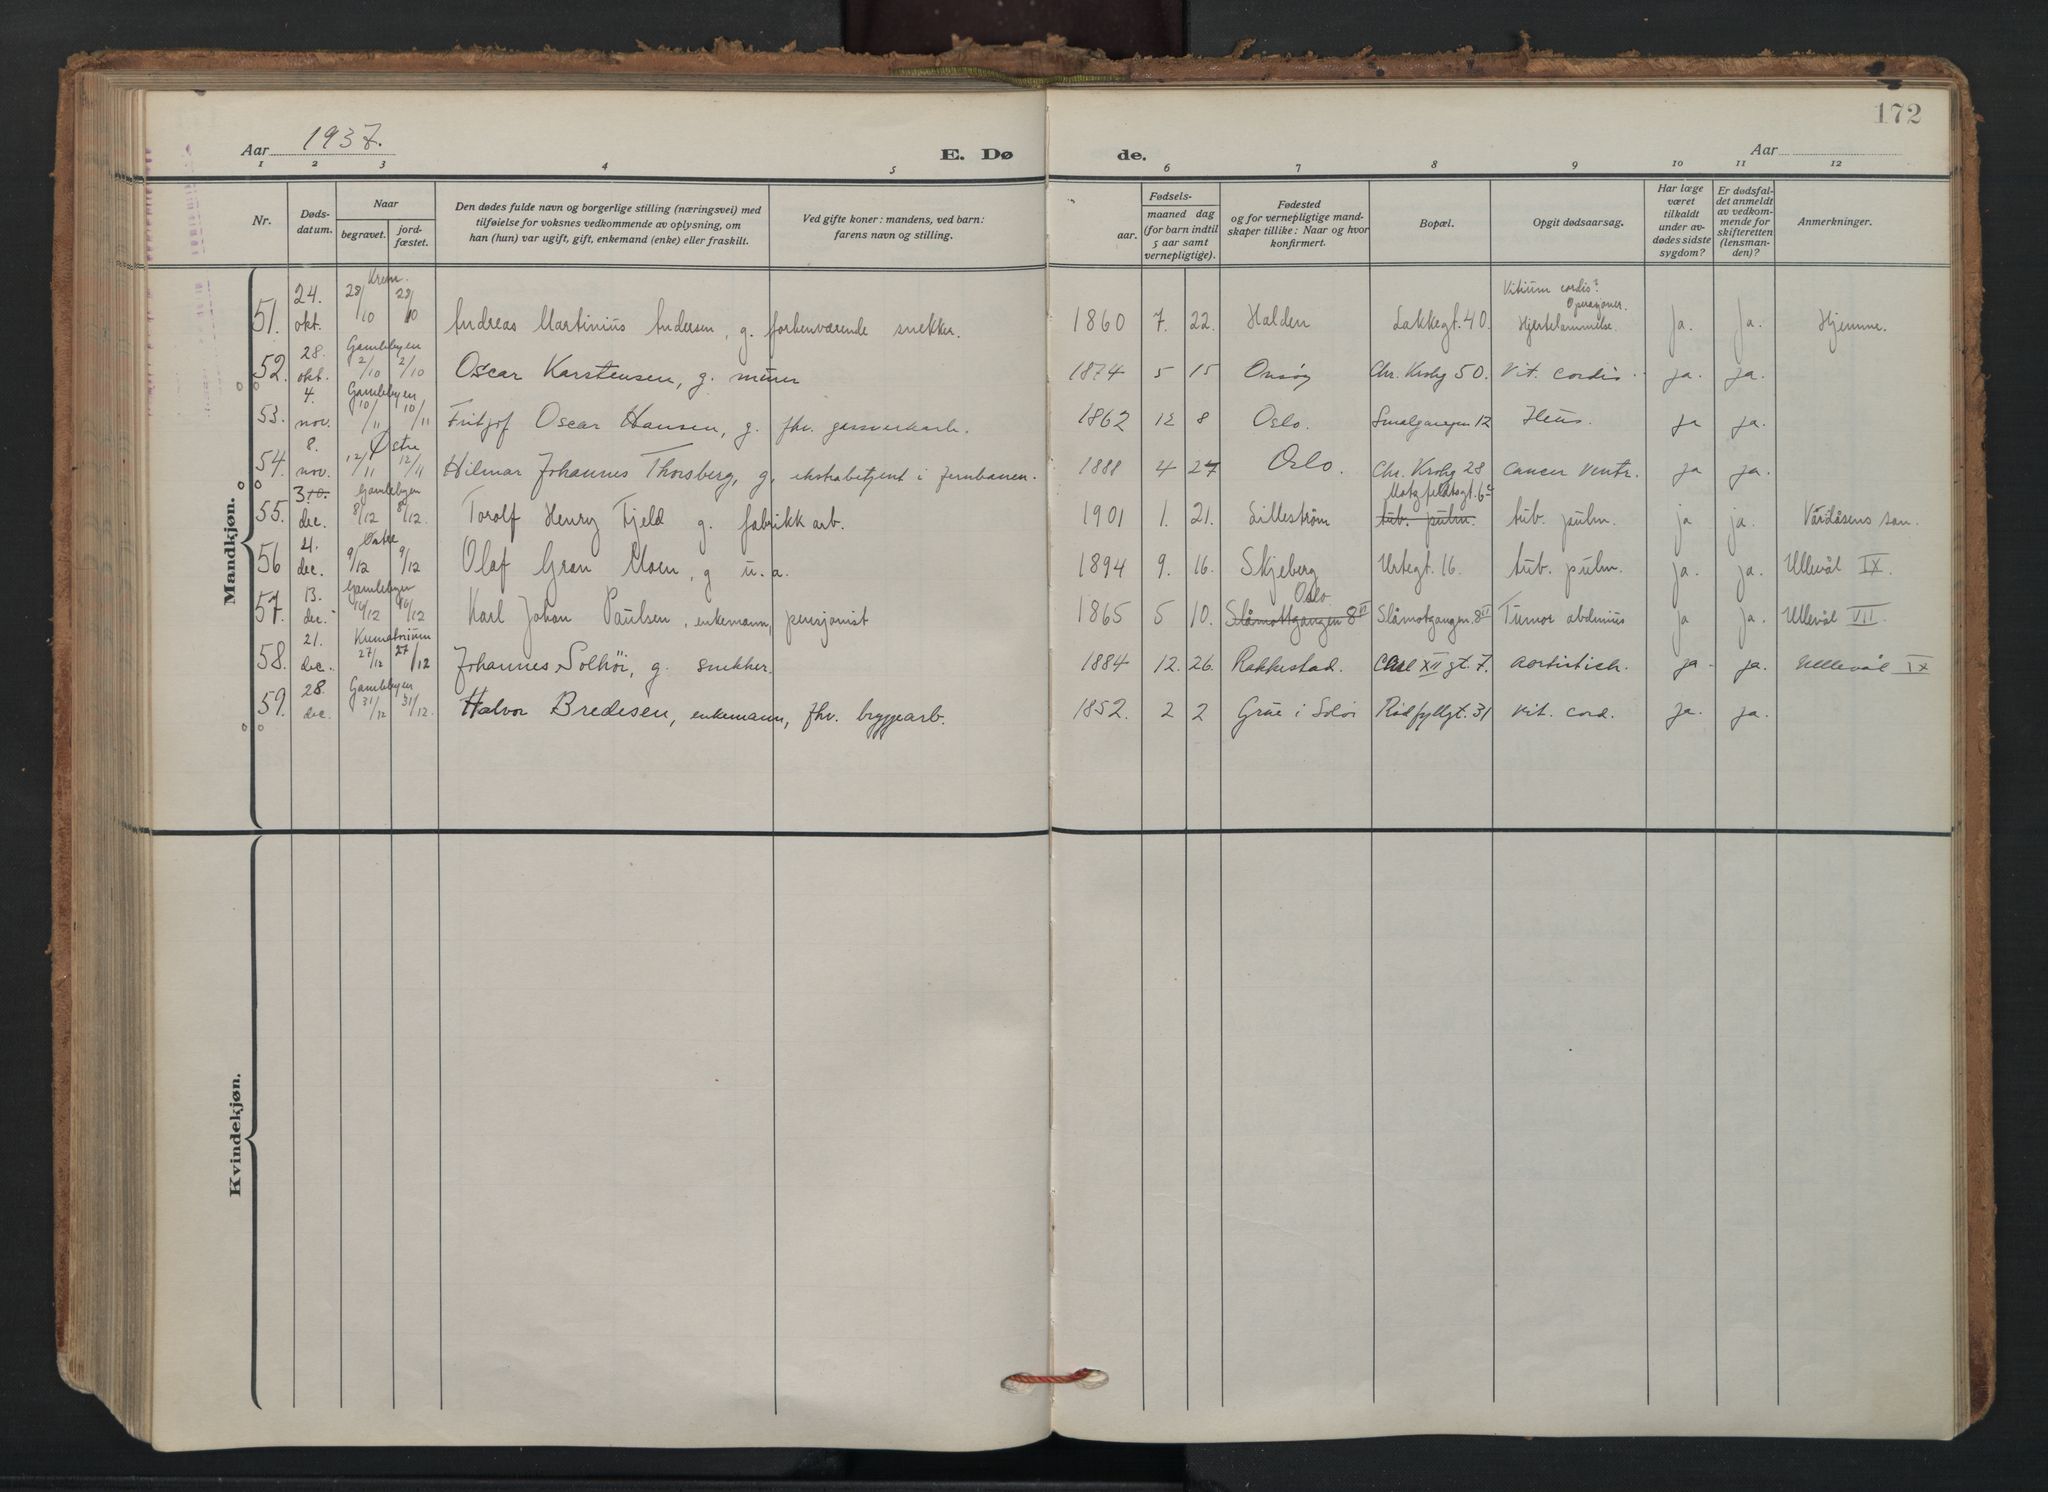 172
Aar 1937. E. Dø de. Aar
1 2 3 4 5 6 7 8 9 10 11 12
Nr.
Døds-
datum.
Naar
begravet.
jord-
fæstet.
Den dødes fulde navn og borgerlige stilling (næringsvei) med
tilføielse for voksnes vedkommende av oplysning, om
han (hun) var ugift, gift, enkemand (enke) eller fraskilt.
Ved gifte koner: mandens, ved barn:
farens navn og stilling.
Fødsels-
aar.
maaned dag
(for barn indtil
5 aar samt
vernepligtige).
Fødested
og for vernepligtige mand-
skaper tillike: Naar og hvor
konfirmert.
Bopæl.
Opgit dødsaarsag.
Har læge
været
tilkaldt
under av-
dødes sidste
sygdom?
Er dødsfal-
det anmeldt
av vedkom-
mende for
skifteretten
(lensman-
den)?
Anmerkninger.
Mandkjøn.
Krem. Vitium cordis? Operasjoner.
51. 24. okt. 28/10 28/10 Andreas Martinius Andersen, g. forhenværende snekker. 1860 7. 22. Halden Lakkegt. 40. Hjertelammelse. Ja. Ja. Hjemme.
Gamlebyen
52. 28. okt. 2/10 2/10 Oscar Karstensen, g. murer 1874 5 15 Onsøy Chr. Krohg 50. Vit. cordis. ja. ja.
Gamlebyen
53. 4. nov. 10/11 10/11 Fritjof Oscar Hansen, g. fhv. gassverkarb. 1862 12 8 Oslo. Smalgangen 12 Ileus. ja ja.
Østre
54. 8. nov. 12/11 12/11 Hilmar Johannes Thorsberg, g, ekstrabetjent i jernbanen. 1888 4 27 Oslo. Chr. Krohg 28 Cancer ventr. ja ja.
Gamlebyen Motzfeldtsgt. 6c
55. 3 10. dec. 8/12 8/12. Torolf Henry Fjeld g. fabrikk arb. 1901 1. 21. Lillestrøm tub. pulm. tub. pulm. ja ja. Vårdåsens san.
Østre
56 4. dec. 9/12 9/12 Olaf Gran Moen, g u.a. 1894 9. 16. Skjeberg Urtegt. 16. tub. pulm. ja. ja. Ullevål IX.
Gamlebyen Oslo
57. 13. dec. 16/12 16/12 Karl Johan Paulsen, enkemann, pensjonist 1865 5 10. Slåmottgangen 8 VI Slåmotgangen. 8 VI Tumor abdminis ja ja. Ullevål VII.
Krematorium
58. 21. dec. 27/12 27/12 Johannes Solhöi, g. snekker. 1884 12. 26. Rakkestad. Carl XII gt. 7. aortistich. ja. ja. Ullevål IX
Gamlebyen
59. 28. dec. 31/12 31/12. Halvor Bredesen, enkemann, fhv. bryggearb. 1852. 2 2 Grue i Solør Rødfyllgt. 31 vit. cord. ja. ja.
Kvindekjøn.